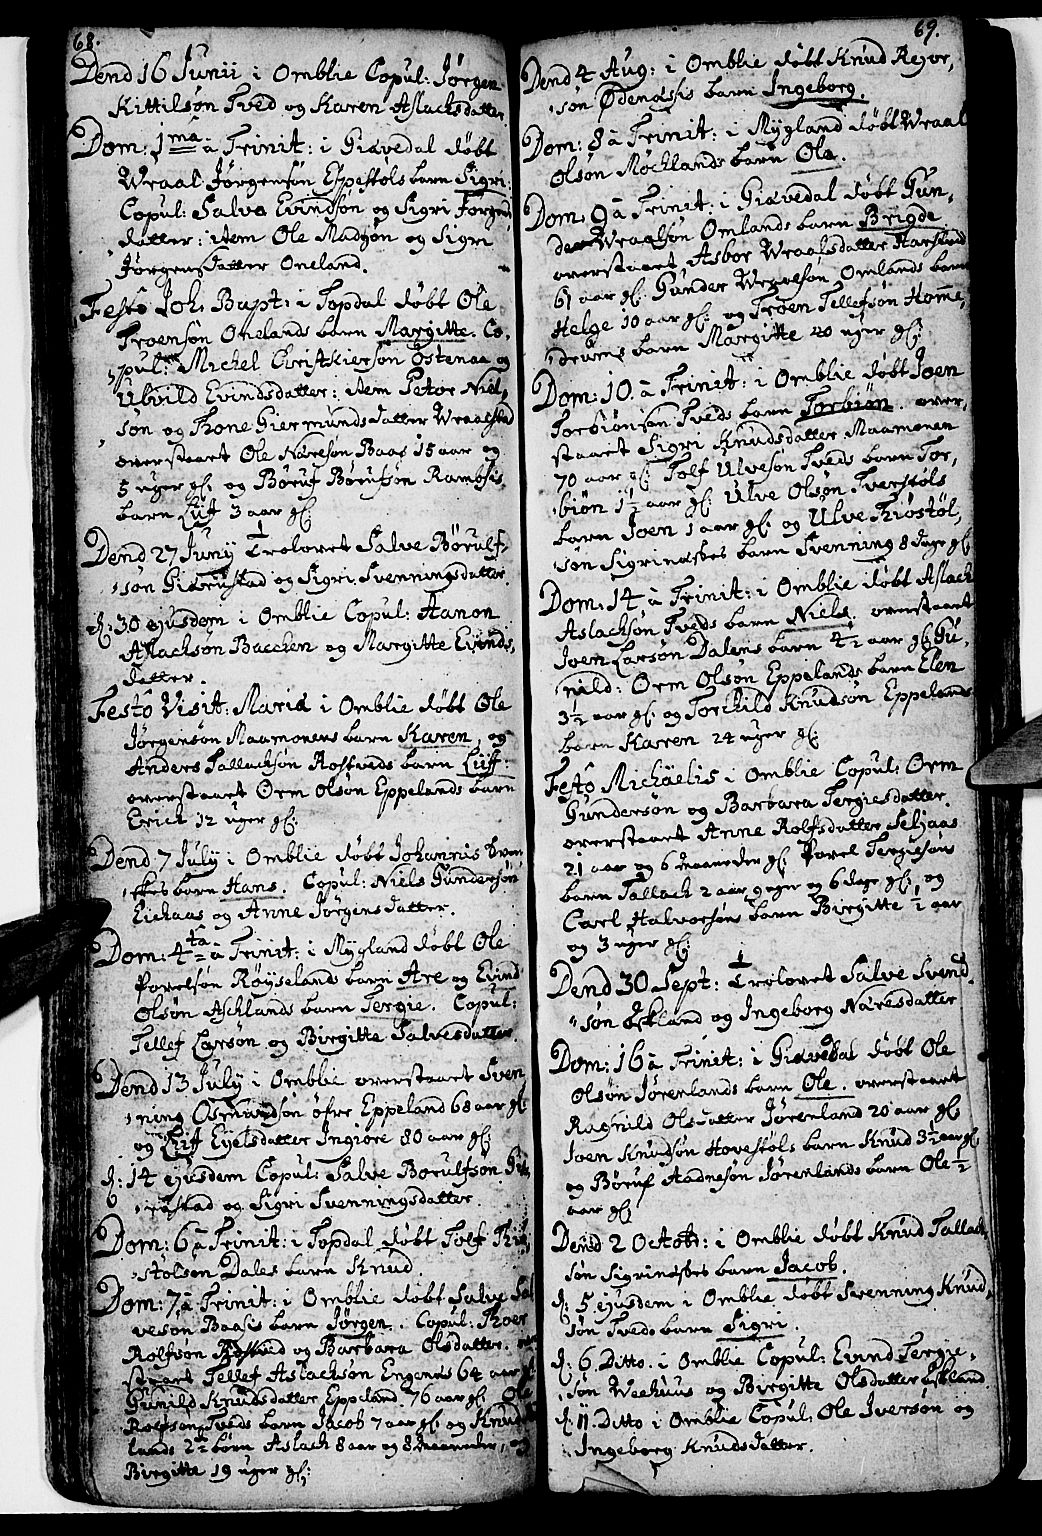 68.
Dend 16 Junii i Omblie Copul: Jørgen
Kittilsøn Tved og Karen Aslachsdatter.
Dom: 1ma â Trinit: i Giøvedal døbt
Wraal Jørgensøn Espestøls barn Sigri:
Copul: Salve Evindsøn og Sigri Jørgens
datter: item Ole Madsøn og Sigri
Jørgensdatter Oneland.
Festô Joh. Bapt: i Topdal døbt Ole
Troensøn Onelands barn Margitte. Co,
pul: Michel Christiersøn Østenaa og
Ulvild Evindsdatter: item Peter Niel,
søn og Thone Giermundsdatter Wraalstad
overstaaet Ole Naresøn Baas 15 aar og
5 uger gl. og Børuf Børufsøn Rambsis
barn Liff 3 aar gl.
Dend 27 Juny Troloret Salve Børulf,
søn Giærustad og Sigri Svenningsdatter.
d: 30 ejusdem i Omblie Copul: Aanon
Aslachsøn Bacchen og Margitte Evinds,
datter.
Festô Visit: Mariæ i Omblie døbt Ole
Jørgensøn Maamonens barn Karen, og
Anders Tallachsøn Rostveds barn Liff:
overstaaet Orm Olsøn Eppelands barn
Erich 12 uger gl:
Dend 7 July i Omblie døbt Johannis
barn Hans. Copul: Niels Gundersøn
Eichaas og Anne Jørgensdatter.
Dom: 4ta â Trinit: i Mÿgland døbt Ole
Povelsøn Røÿselands barn Are og Evind
Olsøn Aschlands barn Tergie. Copul:
Tellef Larsøn og Birgitte Salvesdatter
Dend 13 July i Omblie overstaaet Sven
ning Osmundsøn øfre Eppeland 68 aar gl
og Liff Eyelsdatter Ingiore 80 aar gl:
d: 14 ejusdem Copul: Salve Børulfsøn
og Sigri Svenningsdatter.
Dom: 6 â Trinit: i Topdal døbt Tolf
stølsen Dales barn Knud.
Dom: 7 â Trinit: i Omblie døbt Salve Sal
vesøn Baasis barn Jørgen. Copul:
Rolfsøn og Barbara Olsdatter.
staaet Tellef Aslachsøn Engenes 64 aar
Gunild Knudsdatter Eppeland 76 aar gl. Ole
Rolfsøn Tveds barn Jacob 7 aar gl og Knud
lands 2de børn Aslach 8 aar og 8 maaneder,
Birgitte 19 uger gl:
69.
Dend 4 Aug: i Omblie døbt Knud Rejer,
søn Ødenæsis barn Ingeborg.
Dom: 8 â Trinit: i Mÿgland døbt Wraal
Olsøn Mochlands barn Ole.
Dom: 9 â Trinit: i Giøvedal døbt Gun,
der Wraalsøn Omlands barn Brigde
overstaaet Asbor Wraalsdatter Harstad
61 aar gl: Gunder Wraalsøn Omlands barn
Helge 10 aar gl: og Troen Tellefsøn Homme,
drums barn Margitte 20 uger gl:
Dom: 10. â Trinit: i Omblie døbt Joen
Torbiønsøn Tveds barn Torbiøn. over,
staaet Sigri Knudsdatter Maamonen
70 aar gl: Tolf Ulvesøn Tveds barn Tor,
biøn 1½ aar gl: Ulve Olsøn Tverstøls
barn Joen 1 aar gl: og Ulve Kiøstøl,
søn Sigrinæsbes barn Svenning 8 dage gl:
Dom: 14 â Trinit: i Omblie døbt Aslach
Aslachsøn Tveds barn Niels. overstaaet
Joen Larsøn Dalens barn 4½ aar gl Gu,
nild: Orm Olsøn Eppelands barn Elen
3½ aar gl: og Torchild Knudsøn Eppelands
barn Karen 24 uger gl:
Festô Michäelis i Omblie Copul: Orm
Gundersøn og Barbara Tergiesdatter.
overstaaet Anne Rolfsdatter Seljaas
21 aar og 6 maaneder gl: Povel Tergiesøns
barn Tallach 2 aar 9 uger og 6 dage gl:, og
Carl Halvorsøns barn Birgitte ½ aar
og 3 uger gl:
Dend 30 Sept: Troloret Salve Svend,
søn Eskland og Ingeborg Naresdatter
Dom: 16 â Trinit: i Giøvedal døbt Ole
Olsøn Jørenlands barn Ole. overstaaet
Ragnild Olsdatter Jørenland 20 aar gl:
Joen Knudsøn Hovestøls barn Knud 3½ aar gl:
og Børuf Aadnesøn Jørenlands barn Ole ½
aar gl:
Dend 2 Octob: i Omblie døbt Knud Tallach,
søn Sigrinæsbes barn Jacob.
d: 5 ejusdem i Omblie døbt Svenning Knud,
søn Tveds barn Sigri.
d: 6 Ditto. i Omblie Copul: Evind Tergie,
søn Weehuus og Birgitte Olsdatter Eskland
d: 11. Ditto i Omblie Copul: Ole Iversøn og
Ingeborg Knudsdatter.